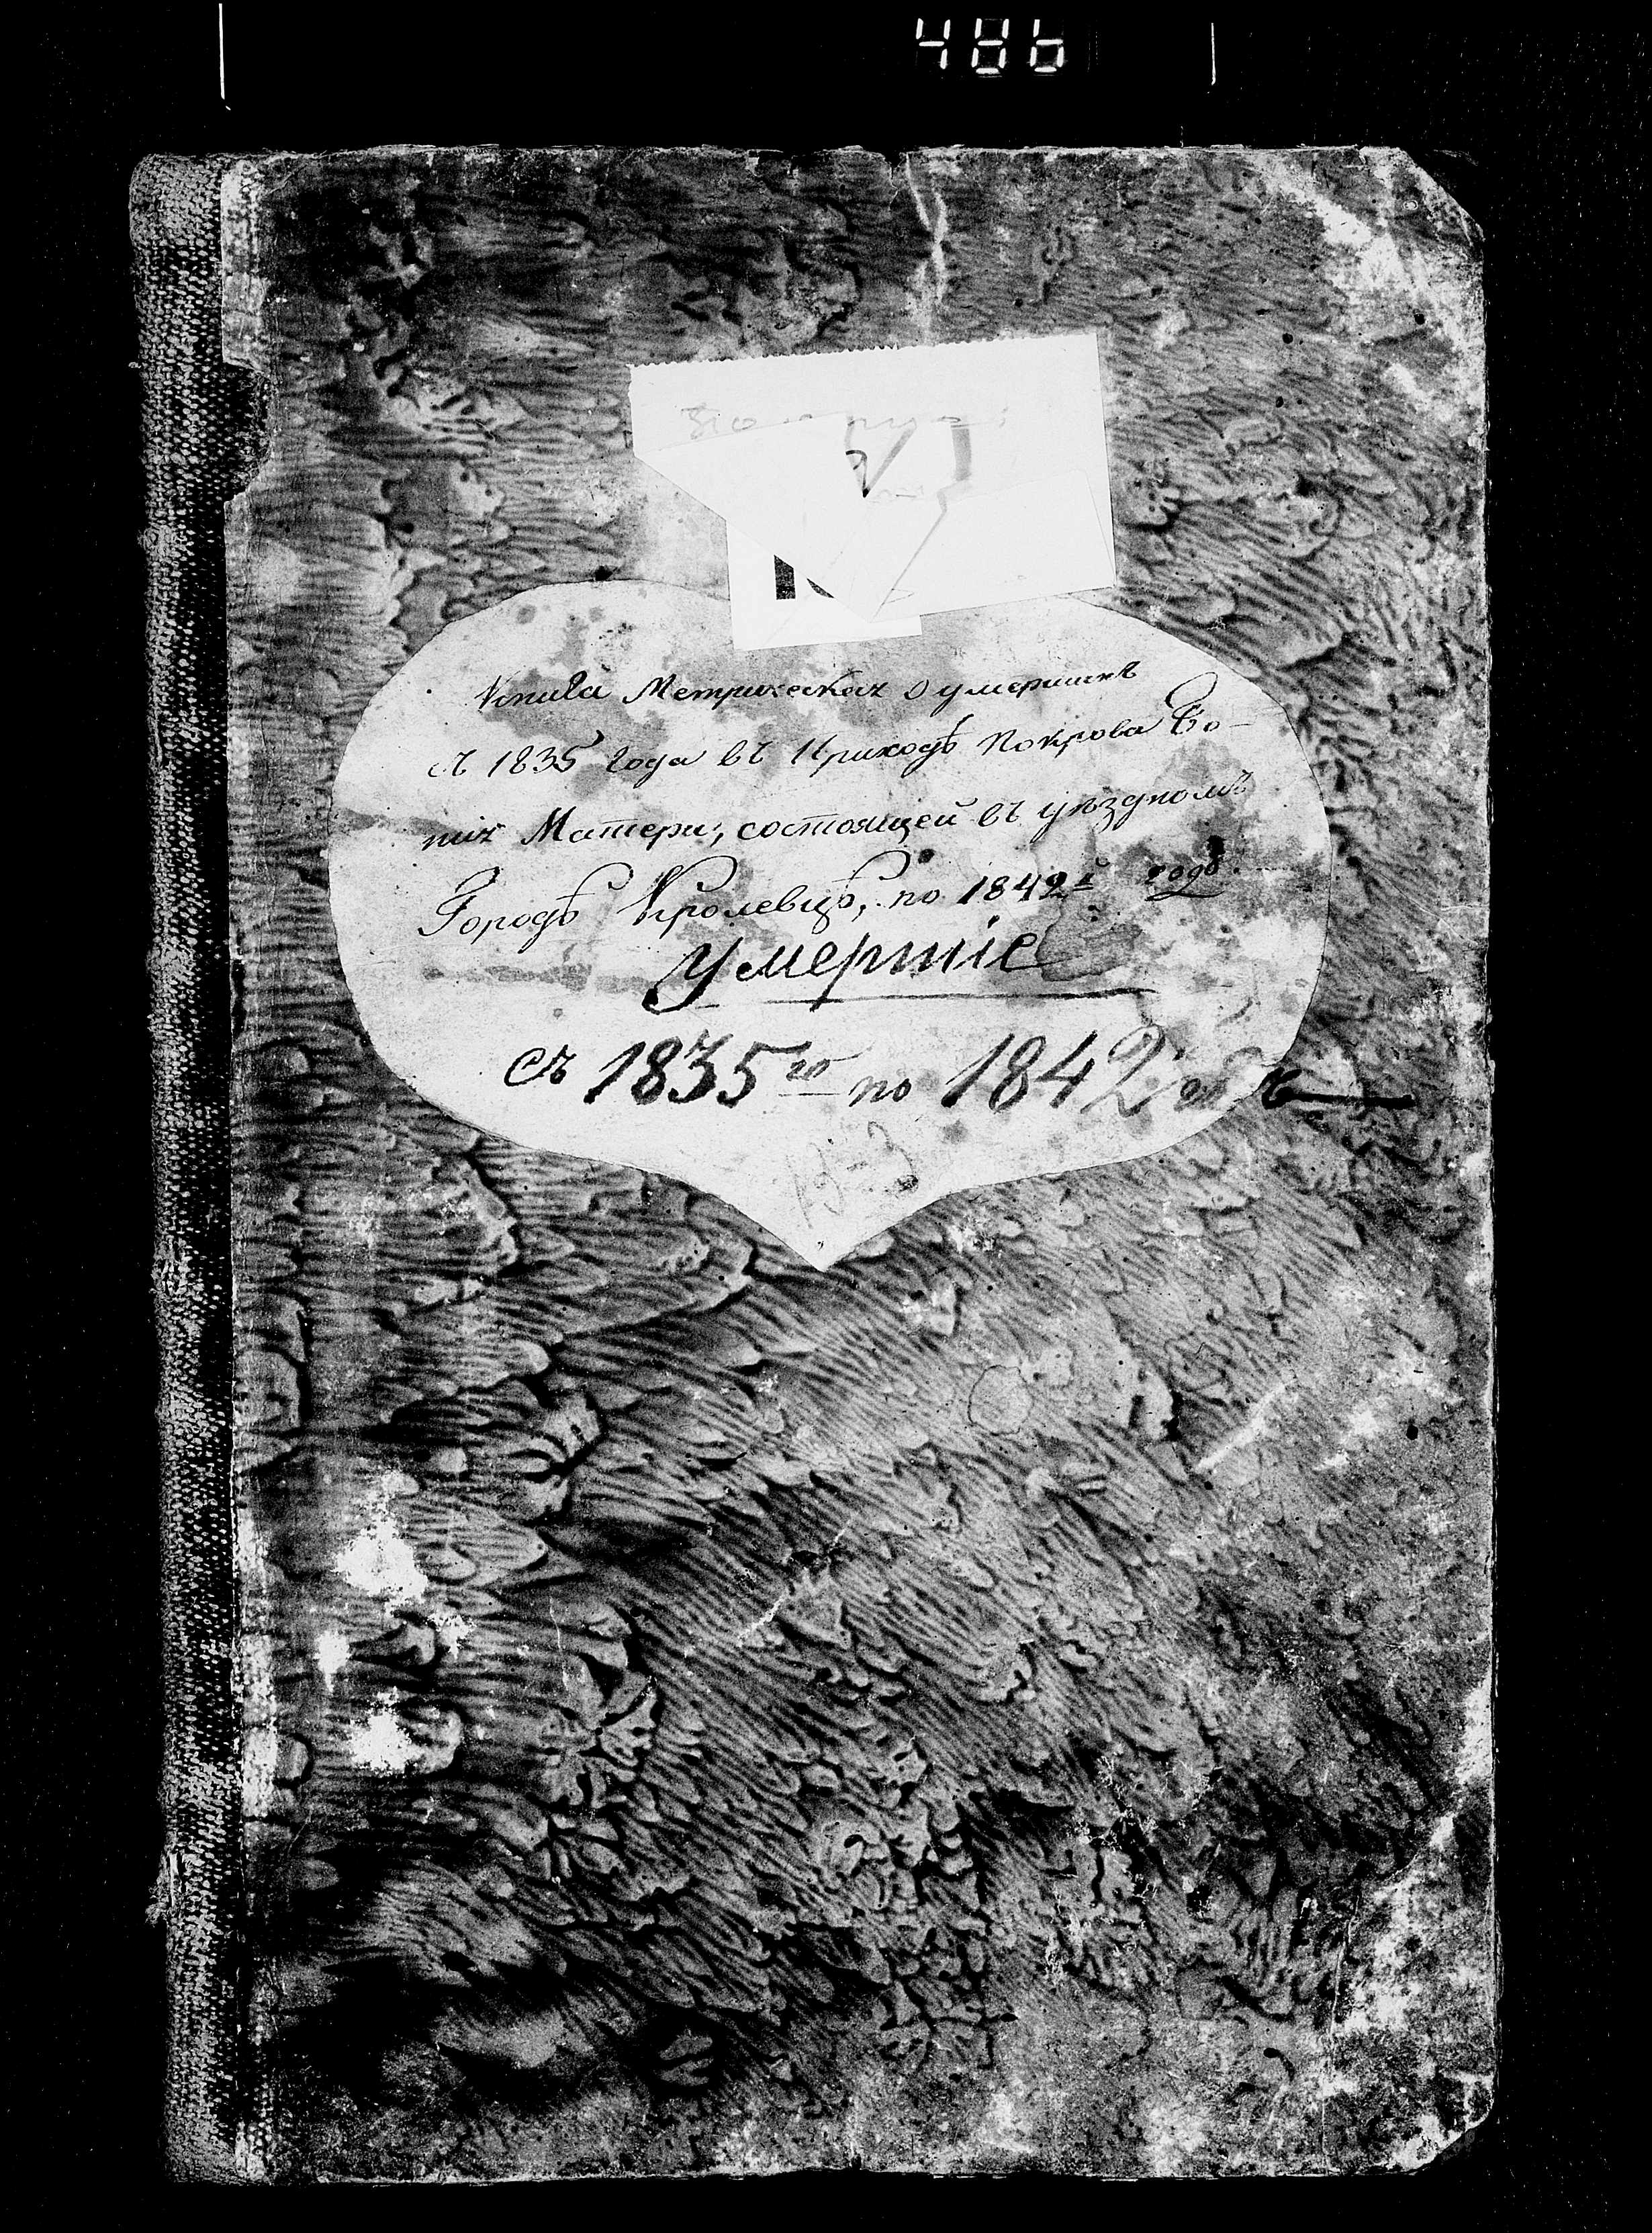 486
Книга Метрическая о умершихъ
съ 1835 года въ Приходѣ Покрова Бо-
жіей Матери, состоящей въ уѣздномъ
Городѣ Кролевцѣ, по 1842й годъ.
Умершіе
съ 1835го по 1842 годъ